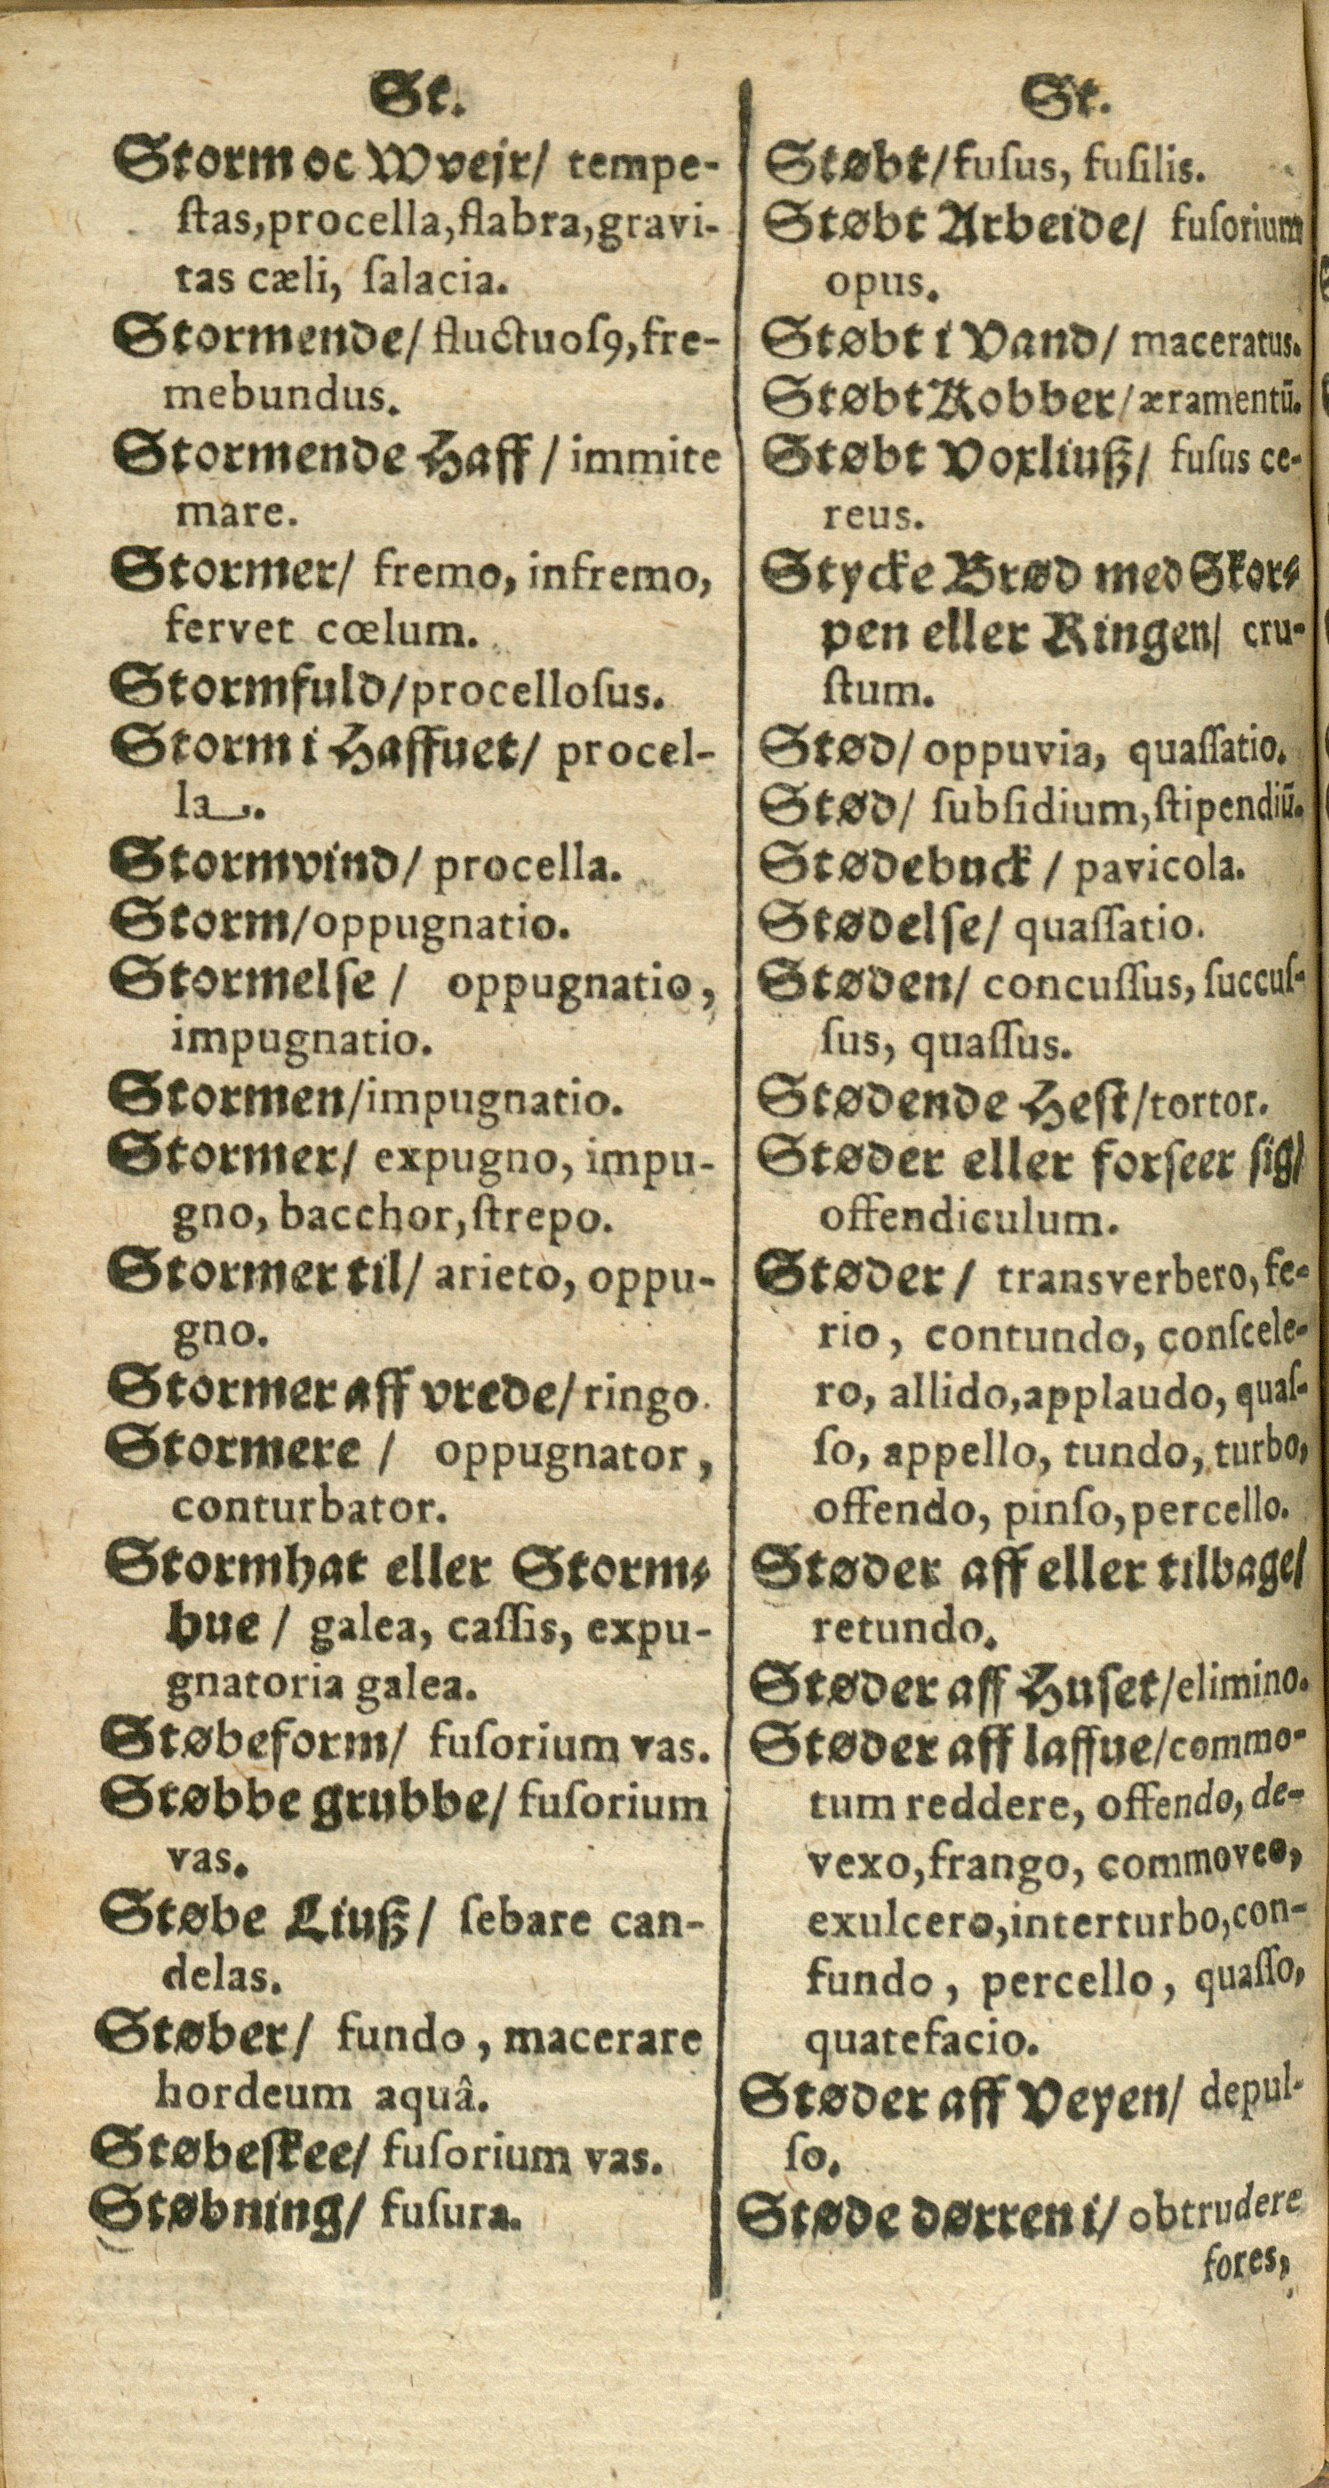 St.
Storm oc Wvejr/ tempe-
ſtas,procella,flabra,gravi-
tas cæli, ſalacia.
Stormende/ fluctuoſꝯ,fre-
mebundus.
Stormende Haff / immite
mare.
Stormer/ fremo, infremo,
fervet cœlum.
Stormfuld/procelloſus.
Storm i Haffuet/ procel-
la.
Stormvind/ procella.
Storm/oppugnatio.
Stormelſe / oppugnatio,
impugnatio.
Stormen/impugnatio.
Stormer/ expugno, impu-
gno, bacchor,ſtrepo.
Stormer til/ arieto, oppu-
gno.
Stormer aff vrede/ringo.
Stormere / oppugnator,
conturbator.
Stormhat eller Storm-
hue / galea, caſſis, expu-
gnatoria galea.
Støbeform/ fuſorium vas.
Støbbe grubbe/ fuſorium
vas.
Støbe Liuß/ ſebare can-
delas.
Støber/ fundo, macerare
hordeum aquâ.
Støbeſkee/ fuſorium vas.
Støbning/ fuſura.
St.
Støbt/fuſus, fuſilis.
Støbt Arbeide/ fuſorium
opus.
Støbt i Vand/ maceratus.
Støbt Kobber/æramentū.
Støbt Voxliuß/ fuſus ce-
reus.
Stycke Brød med Skor-
pen eller Ringen/ cru-
ſtum.
Stød/ oppuvia, quaſſatio.
Stød/ ſubſidium,ſtipendiū.
Stødebuck / pavicola.
Stødelſe/ quaſſatio.
Støden/ concuſſus, ſuccuſ-
ſus, quaſſus.
Stødende Heſt/tortor.
Støder eller forſeer ſig/
offendiculum.
Støder / transverbero, fe-
rio, contundo, conſcele-
ro, allido,applaudo, quaſ-
ſo, appello, tundo, turbo,
offendo, pinſo,percello.
Støder aff eller tilbage/
retundo.
Støder aff Huſet/elimino.
Støder aff laffue/commo-
tum reddere, offendo, de-
vexo,frango, commoveo,
exulcero,interturbo,con-
fundo, percello, quaſſo,
quatefacio.
Støder aff Veyen/ depul-
ſo.
Støde dørren i/ obtrudere
fores,